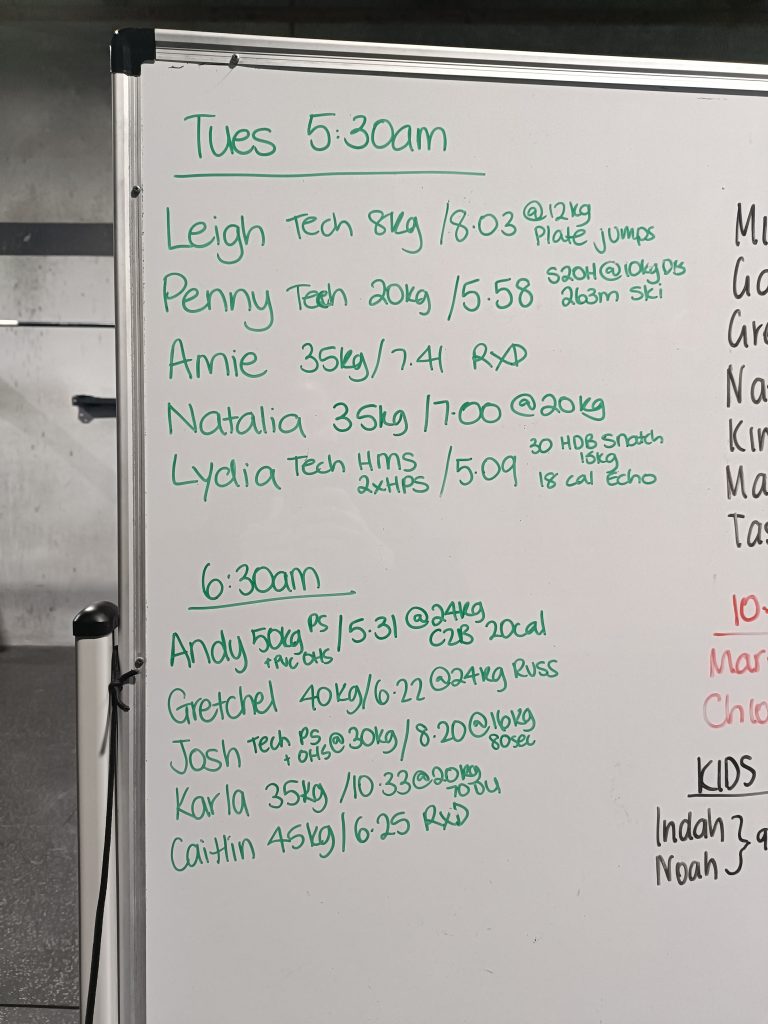 Tues 5:30am
Leigh Tech 8kg /8.03 @12kg Plate jumps
Penny Tech 20kg /5.58 S2OH@10kg DBs 263m Ski
Amie 35kg/7.41 RXD
Natalia 35kg /7.00 @20kg
Lydia Tech HMS 2xHPS /5.09 30 HDB Snatch 15kg 18 cal Echo
6:30am
Andy 50kg PS + PVC OHS /5.31 @24kg C2B 20cal
Gretchel 40kg/6.22 @24kg Russ
Josh Tech PS + OHS @30kg / 8.20 @16kg 80sec
Karla 35kg /10.33 @20kg 70DU
Caitlin 45kg/6.25 RXD
Mu
Go
Gre
Na
Kin
Ma
Tas
10.
Mar
Chlo
KIDS
Indah
Noah